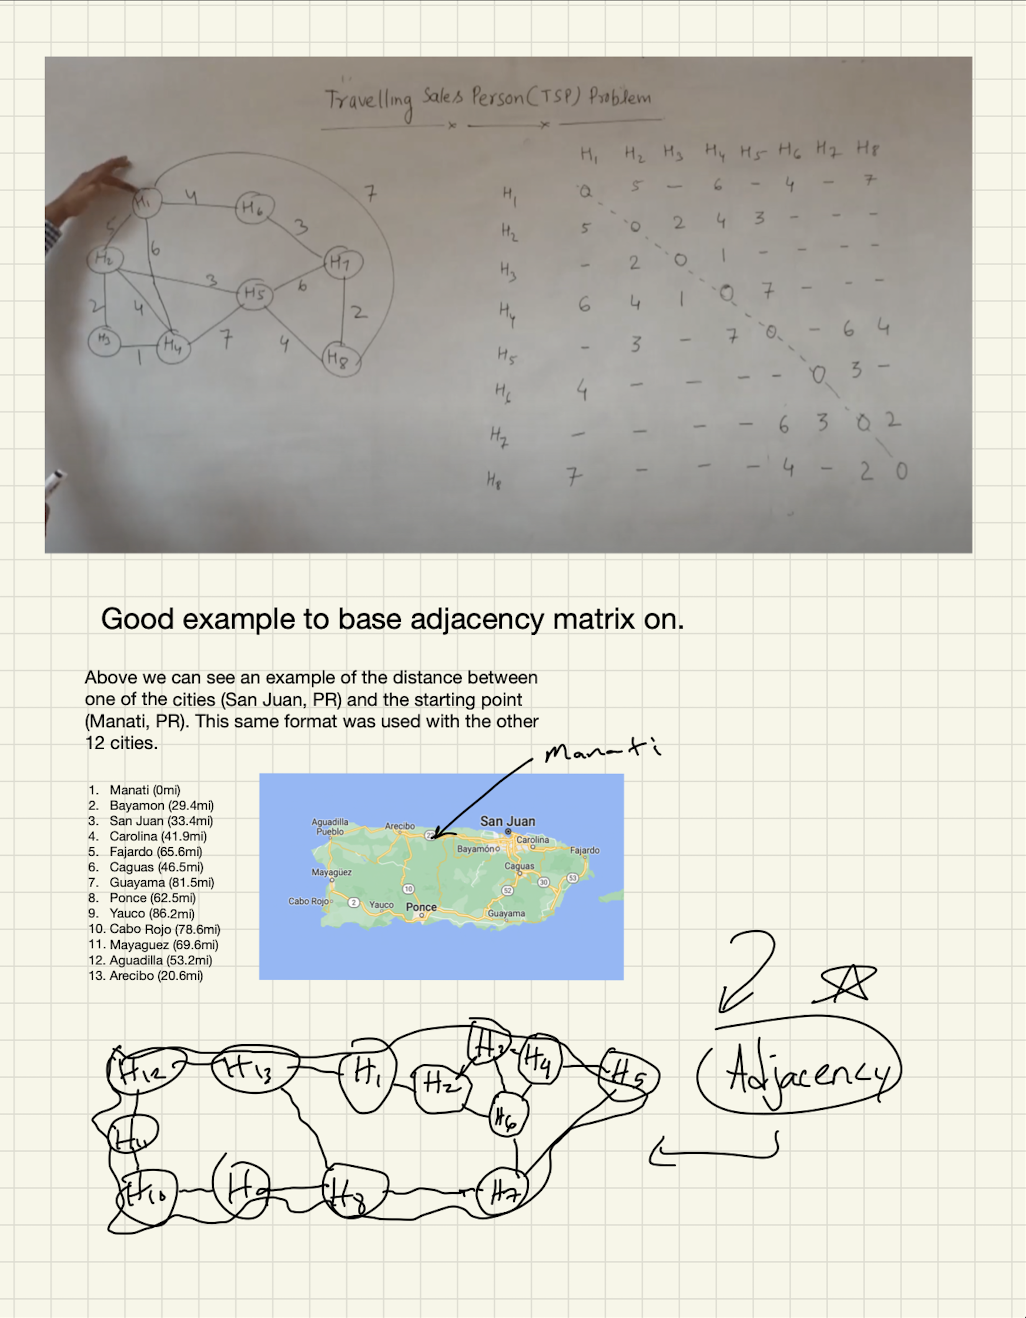 Travelling Sales Person (TSP) Problem
H1 H2 H3 H4 H5 H6 H7 H8
H1 0 5 — 6 - 4 - 7
H2 5 0 2 4 3 - - -
H3 - 2 0 1 - - - -
H4 6 4 1 0 7 - - -
H5 - 3 - 7 0 - 6 4
H6 4 - - - - 0 3 -
H7 - - - - 6 3 0 2
H8 7 - - - 4 - 2 0
H1 4 H6 7
5 6 3
H2 3 H5 6 H7
2 4 2
H3 1 H4 7 4 H8
Good example to base adjacency matrix on.
Above we can see an example of the distance between
one of the cities (San Juan, PR) and the starting point
(Manati, PR). This same format was used with the other
12 cities.
Manati
1. Manati (0mi)
2. Bayamon (29.4mi)
3. San Juan (33.4mi)
4. Carolina (41.9mi)
5. Fajardo (65.6mi)
6. Caguas (46.5mi)
7. Guayama (81.5mi)
8. Ponce (62.5mi)
9. Yauco (86.2mi)
10. Cabo Rojo (78.6mi)
11. Mayaguez (69.6mi)
12. Aguadilla (53.2mi)
13. Arecibo (20.6mi)
Aguadilla
Pueblo
Arecibo
San Juan
Carolina
Bayamón
Fajardo
Mayagüez
Caguas
10
52
30
53
Cabo Rojo
2
Yauco
Ponce
Guayama
H12 H13 H1 H2 H3 H4 H5
H11 H6
H10 H9 H8 H7
Adjacency